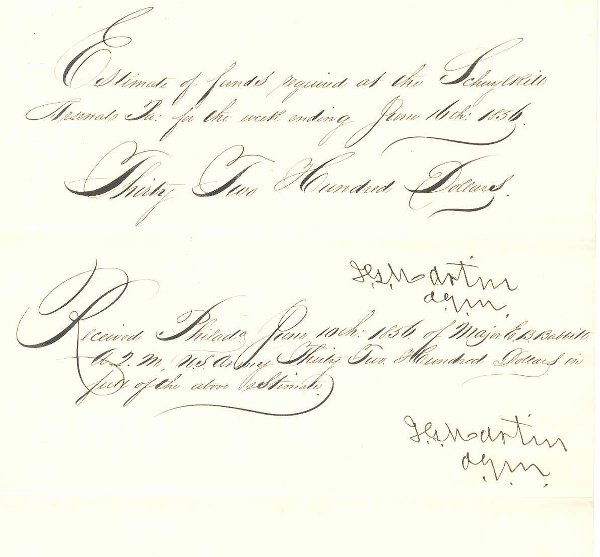 Estimate of funds required at the Schuylkill
Arsenal Pa: for the week ending June 16th: 1856.
Thirty Two Hundred Dollars.
J.G. Martin
a.q.m.
Received Philada June 10th: 1856 of Major E B Babbitt
A Q. M. U.S. Army Thirty Two Hundred Dollars in
full of the above Estimate.
J.G. Martin
a.q.m.